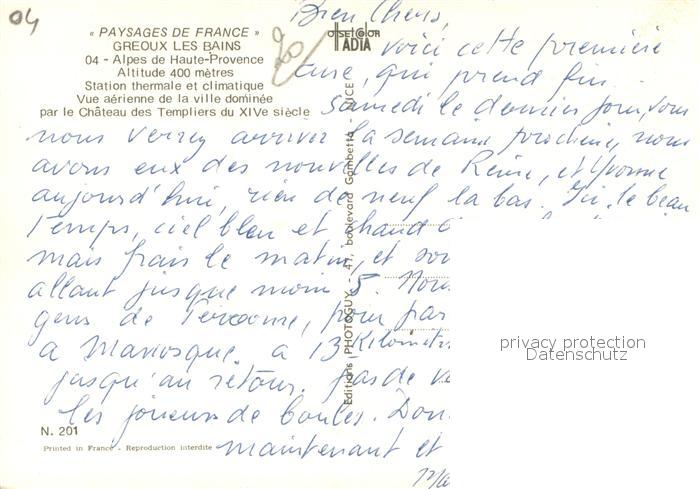 04
« PAYSAGES DE FRANCE »
GREOUX LES BAINS
04 - Alpes de Haute-Provence
Altitude 400 mètres
Station thermale et climatique
Vue aérienne de la ville dominée
par le Château des Templiers du XIVe siècle
offset color
ADIA
Bien Chers,
voici cette première
cure, qui prend fin
samedi le dernier jour, vous
nous verrez arriver la semaine prochaine, nous
avons eux des nouvelles de Reine, et Yvonne
aujourd'hui, rien de neuf la bas. Ici, le beau
temps, ciel bleu et chaud
mais frais le matin, et
allant jusque moins 5. Nous
gens de, pour
a Manosque a 13 Kilomètr
jusqu'au retour. pas de
les joueurs de boules. Don
maintenant et
Editions PHOTOGUY - 47, boulevard Gambetta - NICE
N. 201
Printed in France - Reproduction interdite
privacy protection
Datenschutz